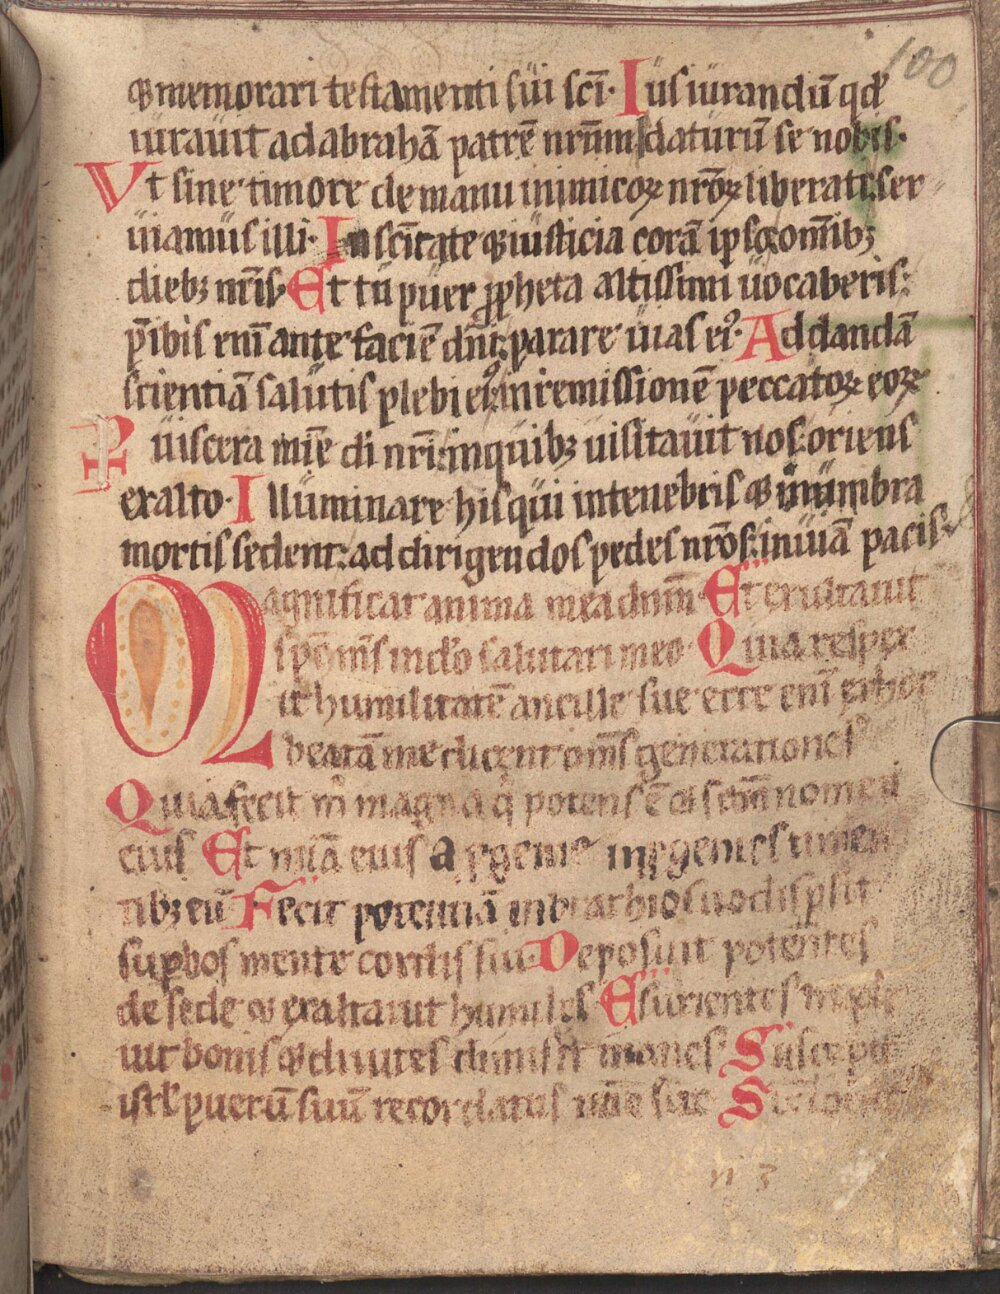 100
⁊ memorari testamenti sui scī. Ius iurandū qđ
iurauit ad abrahā patrē nrm̄ daturū se nobis.
Vt sine timore de manu inimicoꝝ nrōꝝ liberati: ser
uiamus illi. In scītate ⁊ iusticia corā ipso omībꝫ
diebꝫ nrīs. Et tu puer ꝓpheta altissimi uocaberis:
p̄ibis enī ante faciē dnī: parare uias eiꝰ. Ad dandā
scientiā salutis plebi eiꝰ: in remissionē peccatoꝝ eoꝝ
P uiscera mīe di nrī: in quibꝫ uisitauit nos: oriens
ex alto. Illuminare his qui in tenebris ⁊ in umbra
mortis sedent: ad dirigendos pedes nrōs: in uiā pacis.
Magnificat anima mea dnm̄ Et exultauit
spc̄ ms̄ in dō salutari meo. Quia respex
it humilitatē ancille sue ecce enī ex hoc
beatā me dicent oms̄ generationes
Quia fecit m̄ magna q̄ potens ē ⁊ scm̄ nomen
eius Et mīa eius a ꝓgenie in ꝓgenies timen
tibꝫ eū Fecit potentiā in brachio suo disꝑsit
suꝑbos mente cordis sui. Deposuit potentes
de sede ⁊ exaltauit humiles Esurientes imple
uit bonis ⁊ diuites dimisit inanes. Suscepit
isrl̄ puerū suū recordatus mīe sue Sic locut